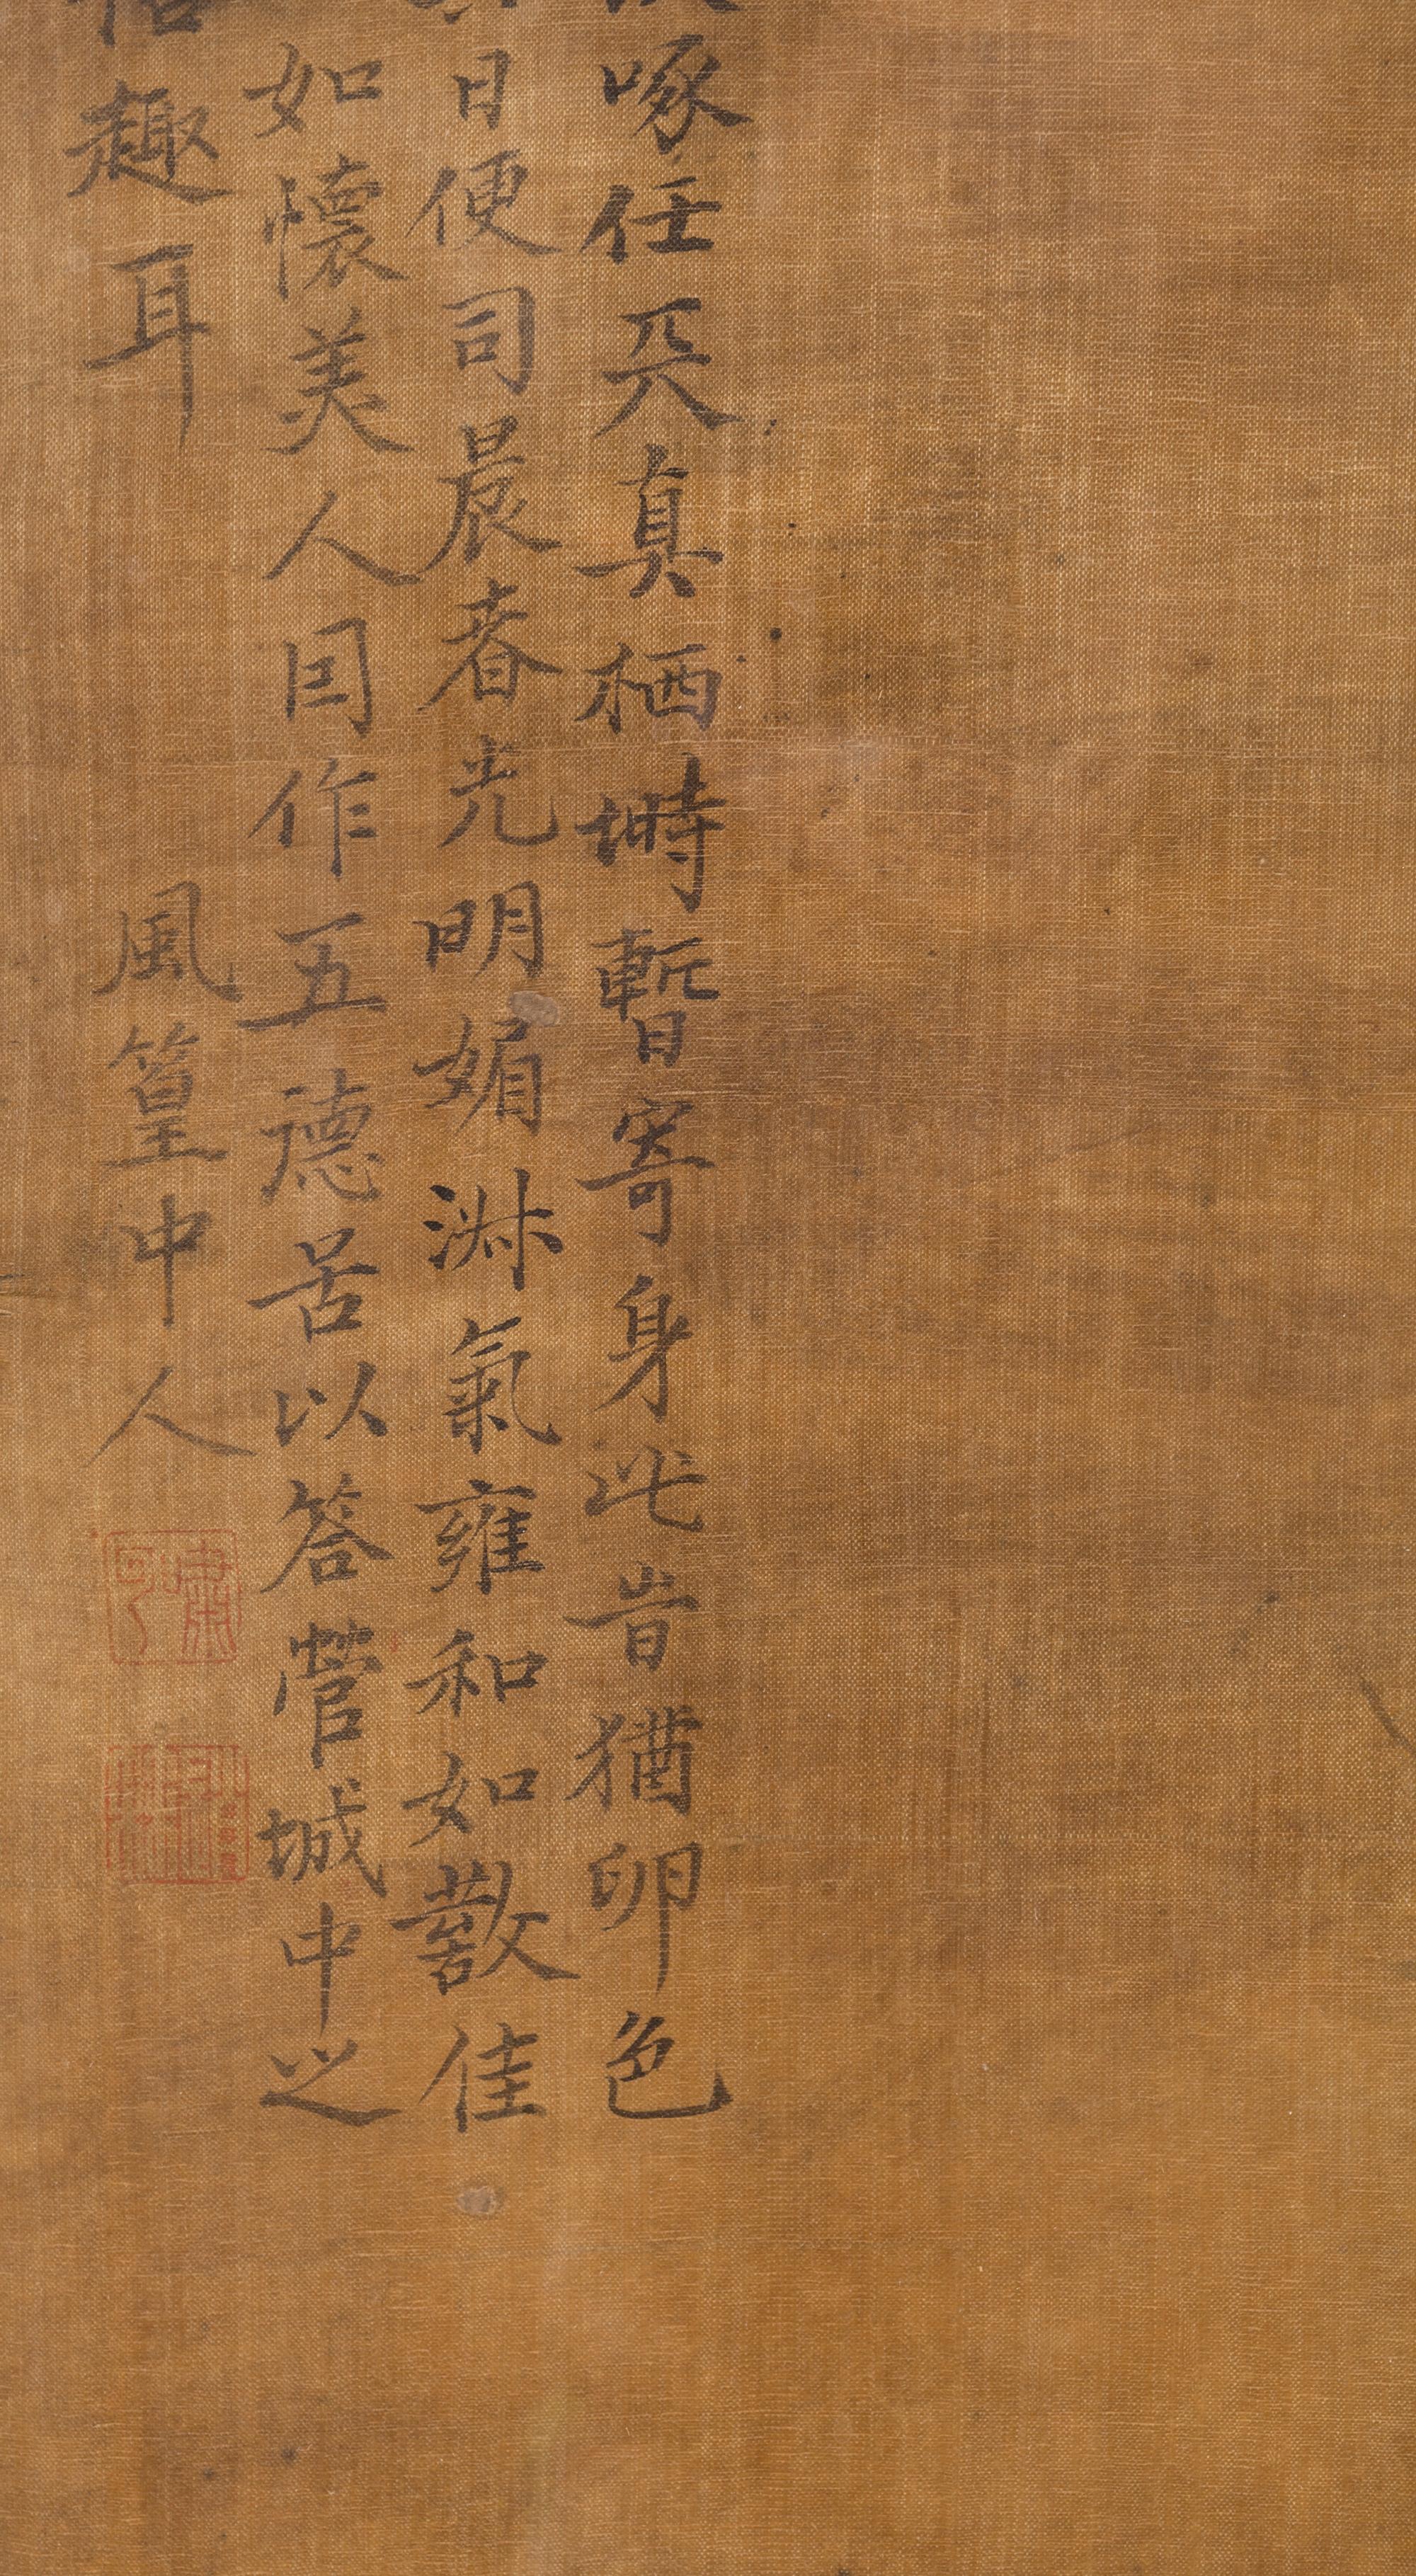 啄任天真栖塒暫寄身此旹猶卵色
日便司晨春光明媚淑氣雍和如佳
如懷美人囙作五德啚以答管城中之
趣耳 風篁中人